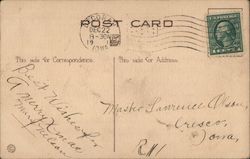 POST CARD
DEC 22
IOWA
This side for Correspondence.
This side for Address.
Best Wishes for
A Merry Xmas
Master Lawrence Olson,
Cresco,
Iowa,